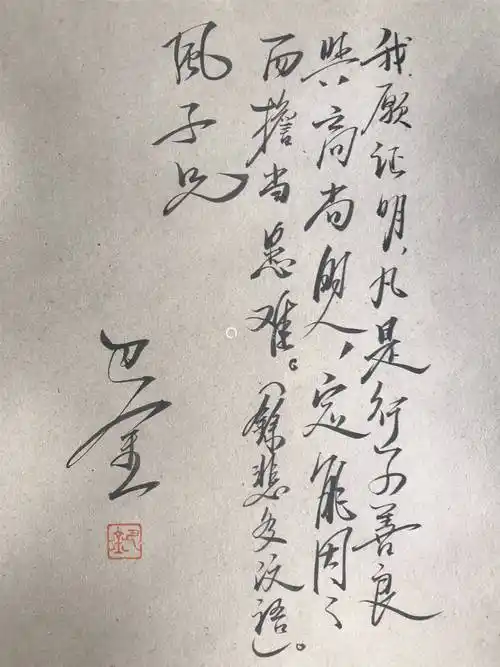 我愿证明，凡是行为善良
與高尚的人，定能因之
而擔当患难。（錄悲多汶语）。
風子兄
巴金